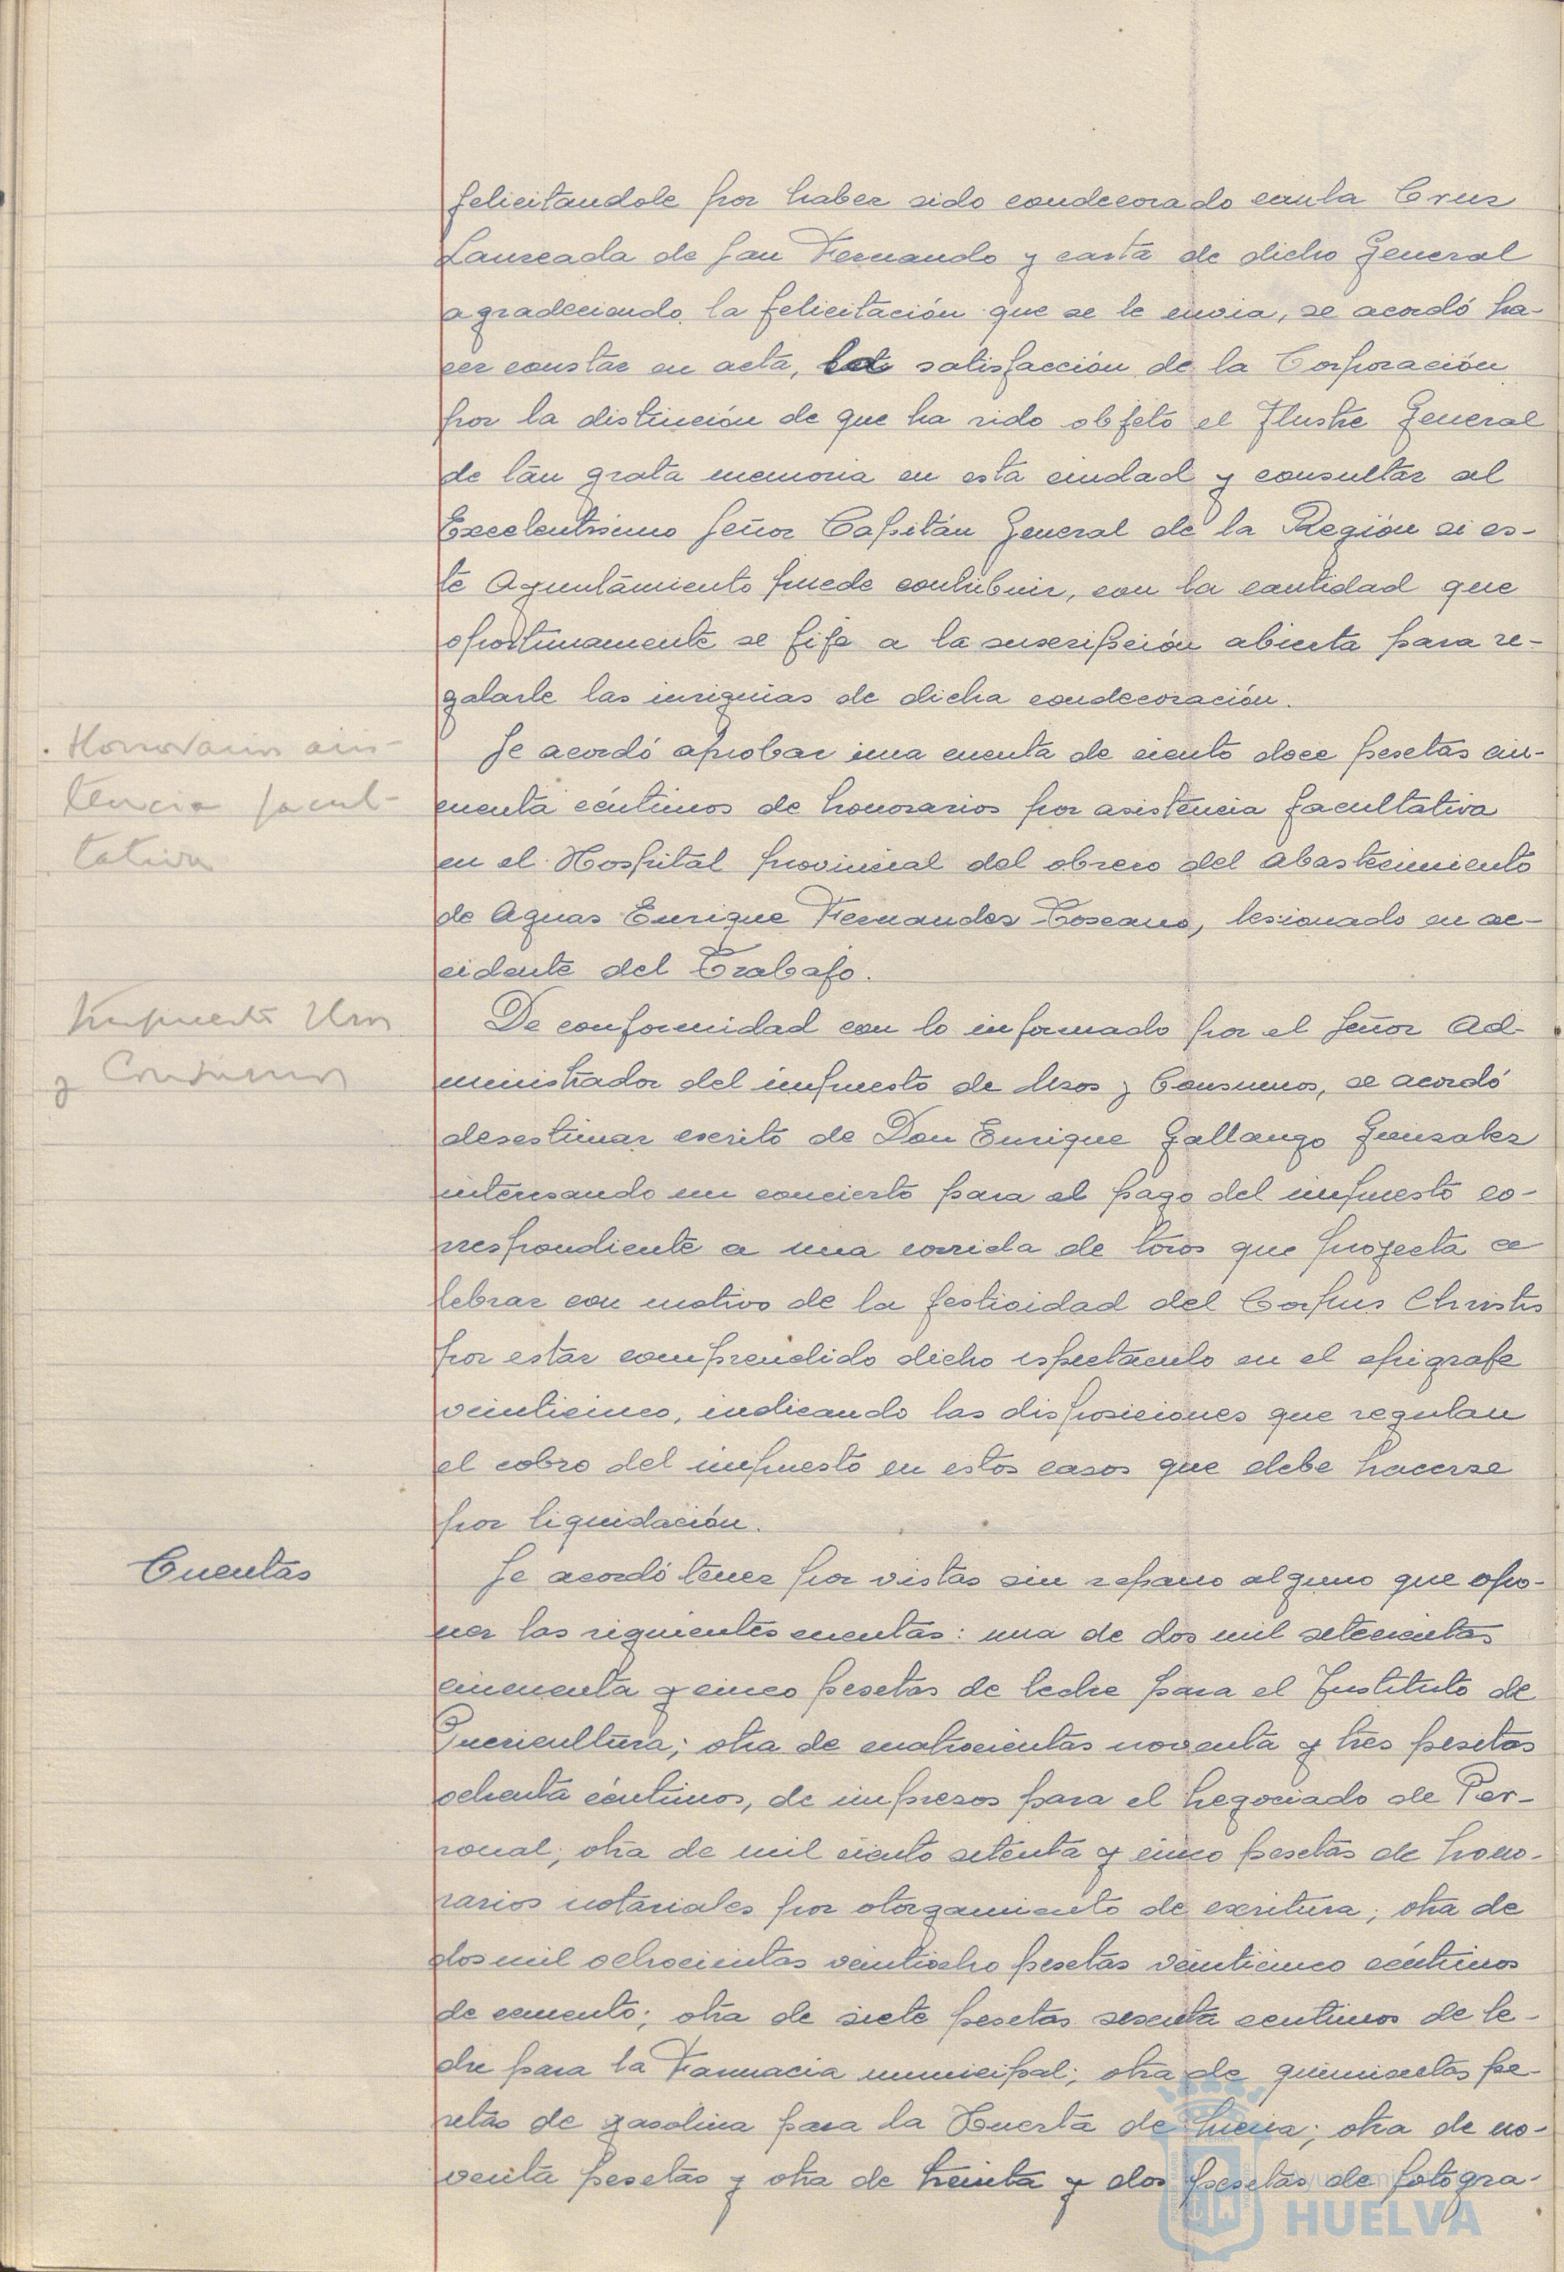 felicitandole por haber sido condecorado con la Cruz
Laureada de San Fernando y carta de dicho General
agradeciendo la felicitación que se le envia, se acordó ha-
cer constar en acta, la satisfacción de la Corporación
por la distinción de que ha sido objeto el Ilustre General
de tan grata memoria en esta ciudad y consultar al
Excelentisimo Señor Capitán General de la Región si es-
te Ayuntamiento puede contribuir, con la cantidad que
oportunamente se fije a la suscripción abierta para re-
galarle las insignias de dicha condecoración.
Honorarios asis-
tencia facul-
tativa
Se acordó aprobar una cuenta de ciento doce pesetas cin-
cuenta céntimos de honorarios por asistencia facultativa
en el Hospital provincial del obrero del abastecimiento
de Aguas Enrique Fernandez Toscano, lesionado en ac-
cidente del Trabajo.
Impuesto Usos
y Consumos
De conformidad con lo informado por el Señor Ad-
ministrador del impuesto de Usos y Consumos, se acordó
desestimar escrito de Don Enrique Gallango Gonzalez
interesando un concierto para el pago del impuesto co-
rrespondiente a una corrida de toros que proyecta ce
lebrar con motivo de la festividad del Corpus Christis
por estar comprendido dicho espectáculo en el epigrafe
veinticinco, indicando las disposiciones que regulan
el cobro del impuesto en estos casos que debe hacerse
por liquidación.
Cuentas
Se acordó tener por vistas sin reparo alguno que opo-
ner las siguientes cuentas: una de dos mil setecientas
cincuenta y cinco pesetas de leche para el Instituto de
Puericultura; otra de cuatrocientas noventa y tres pesetas
ochenta céntimos, de impresos para el Negociado de Per-
sonal; otra de mil ciento setenta y cinco pesetas de hono-
rarios notariales por otorgamiento de escritura; otra de
dos mil ochocientas veintiocho pesetas veinticinco céntimos
de cemento; otra de siete pesetas sesenta centimos de le-
che para la Farmacia municipal; otra de quinientas pe-
setas de gasolina para la Huerta de Mena; otra de no-
venta pesetas y otra de treinta y dos pesetas de fotogra-
HUELVA